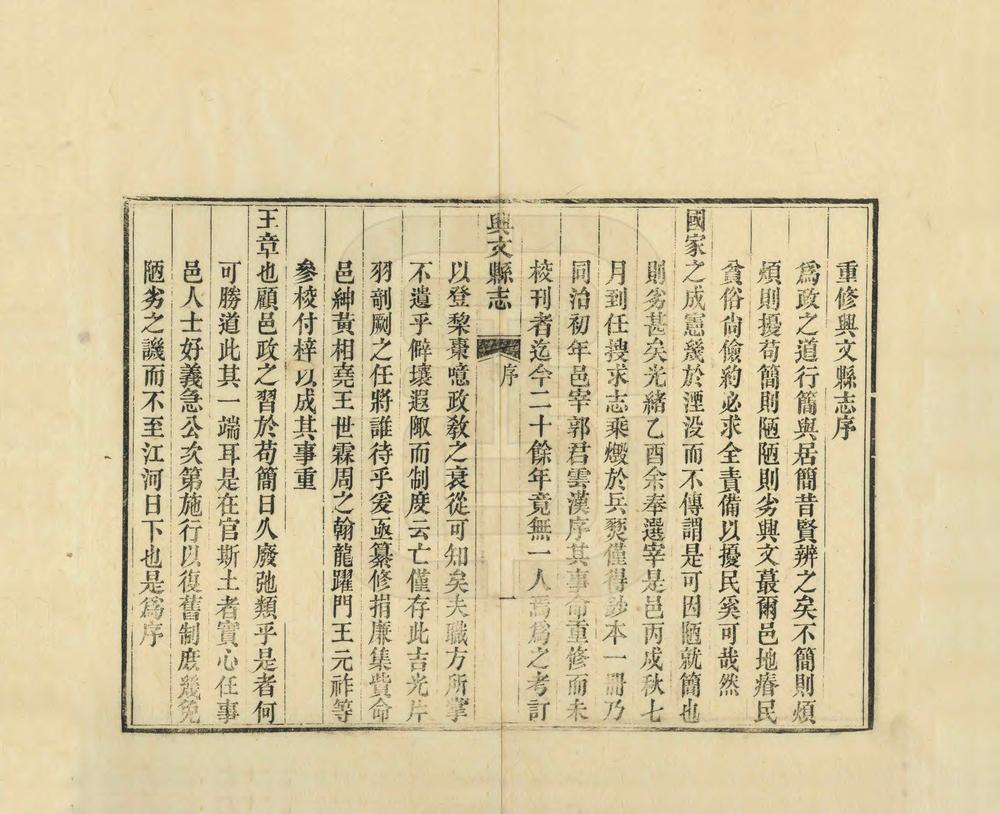 重修興文縣志序
爲政之道行簡與居簡昔賢辨之矣不簡則煩
煩則擾苟簡則陋陋則劣興文蕞爾邑地瘠民
貧俗尙儉約必求全責備以擾民奚可哉然
國家之成憲幾於湮没而不傳謂是可因陋就簡也
則劣甚矣光緒乙酉余奉選宰是邑丙戍秋七
月到任搜求志乘燬於兵燹僅得鈔本一冊乃
同治初年邑宰郭君雲漢序其事命重修而未
梭刊者迄今二十餘年竟無一人焉爲之考訂
興文縣志
序
一
以登棃棗噫政敎之衰從可知矣夫職方所掌
不遺乎僻壤遐陬而制度云亡僅存此吉光片
羽剞劂之任將誰待乎爰亟纂修捐廉集貲命
邑紳黃相堯王世霖周之翰龍躍門王元祚等
參梭付梓以成其事重
王章也顧邑政之習於苟簡日久廢弛類乎是者何
可勝道此其一端耳是在官斯土者實心任事
邑人士好義急公次第施行以復舊制庶幾免
陋劣之譏而不至江河日下也是爲序